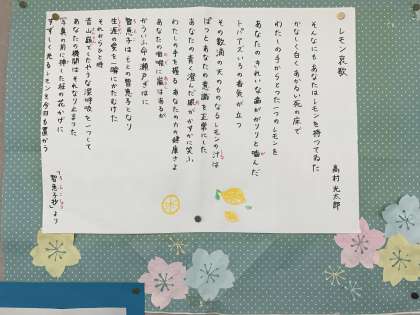 レモン哀歌
高村光太郎
そんなにもあなたはレモンを待つてゐた
かなしく白くあかるい死の床で
わたしの手からとつた一つのレモンを
あなたのきれいな歯ががりりと噛んだ
トパアズいろの香気が立つ
その数滴の天のものなるレモンの汁は
ぱつとあなたの意識を正常にした
あなたの青く澄んだ眼がかすかに笑ふ
わたしの手を握るあなたの力の健康さよ
あなたの咽喉に嵐はあるが
かういふ命の瀬戸ぎはに
智恵子はもとの智恵子となり
生涯の愛を一瞬にかたむけた
それからひと時
昔山巓でしたやうな深呼吸を一つして
あなたの機関はそれなり止まった
写真の前に挿した桜の花かげに
すずしく光るレモンを今日も置かう
「智恵子抄」より